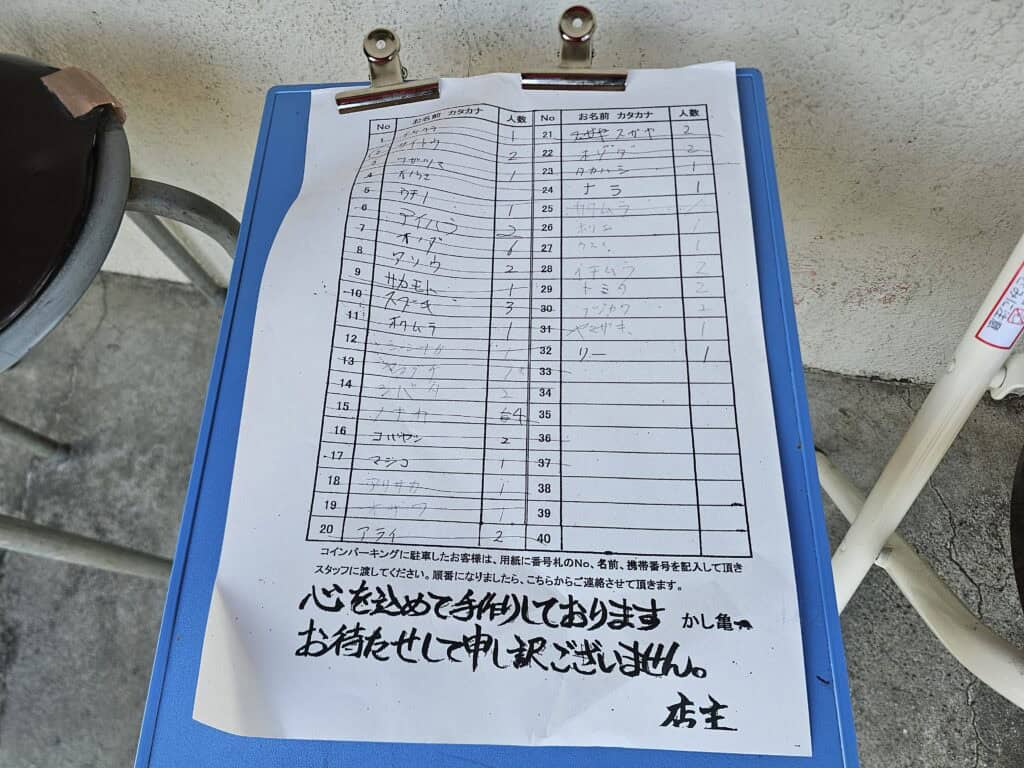 No お名前 カタカナ 人数
1 1
2 サイトウ 2
3 1
4
5 ウチノ 1
6 アイハラ 2
7 オノダ 6
8 アソウ 2
9 サカモト 1
10 スズキ 3
11 ホウムラ 1
12 1
13
14 シバタ 2
15 ノナカ 4
16 コバヤシ 2
17 マジコ 1
18 アリサカ 1
19 オザワ 1
20 アライ 2
No お名前 カタカナ 人数
21 スガヤ 2
22 オノダ 2
23 タカハシ 1
24 ナラ 1
25 カワムラ 1
26 ホリエ 1
27 ウスイ 1
28 イチムラ 2
29 トミタ 2
30 フジカワ 2
31 ヤマザキ 1
32 リー 1
33
34
35
36
37
38
39
40
コインパーキングに駐車したお客様は、用紙に番号札のNo、名前、携帯番号を記入して頂き
スタッフに渡してください。順番になりましたら、こちらからご連絡させて頂きます。
心を込めて手作りしております かし亀
お待たせして申し訳ございません。
店主